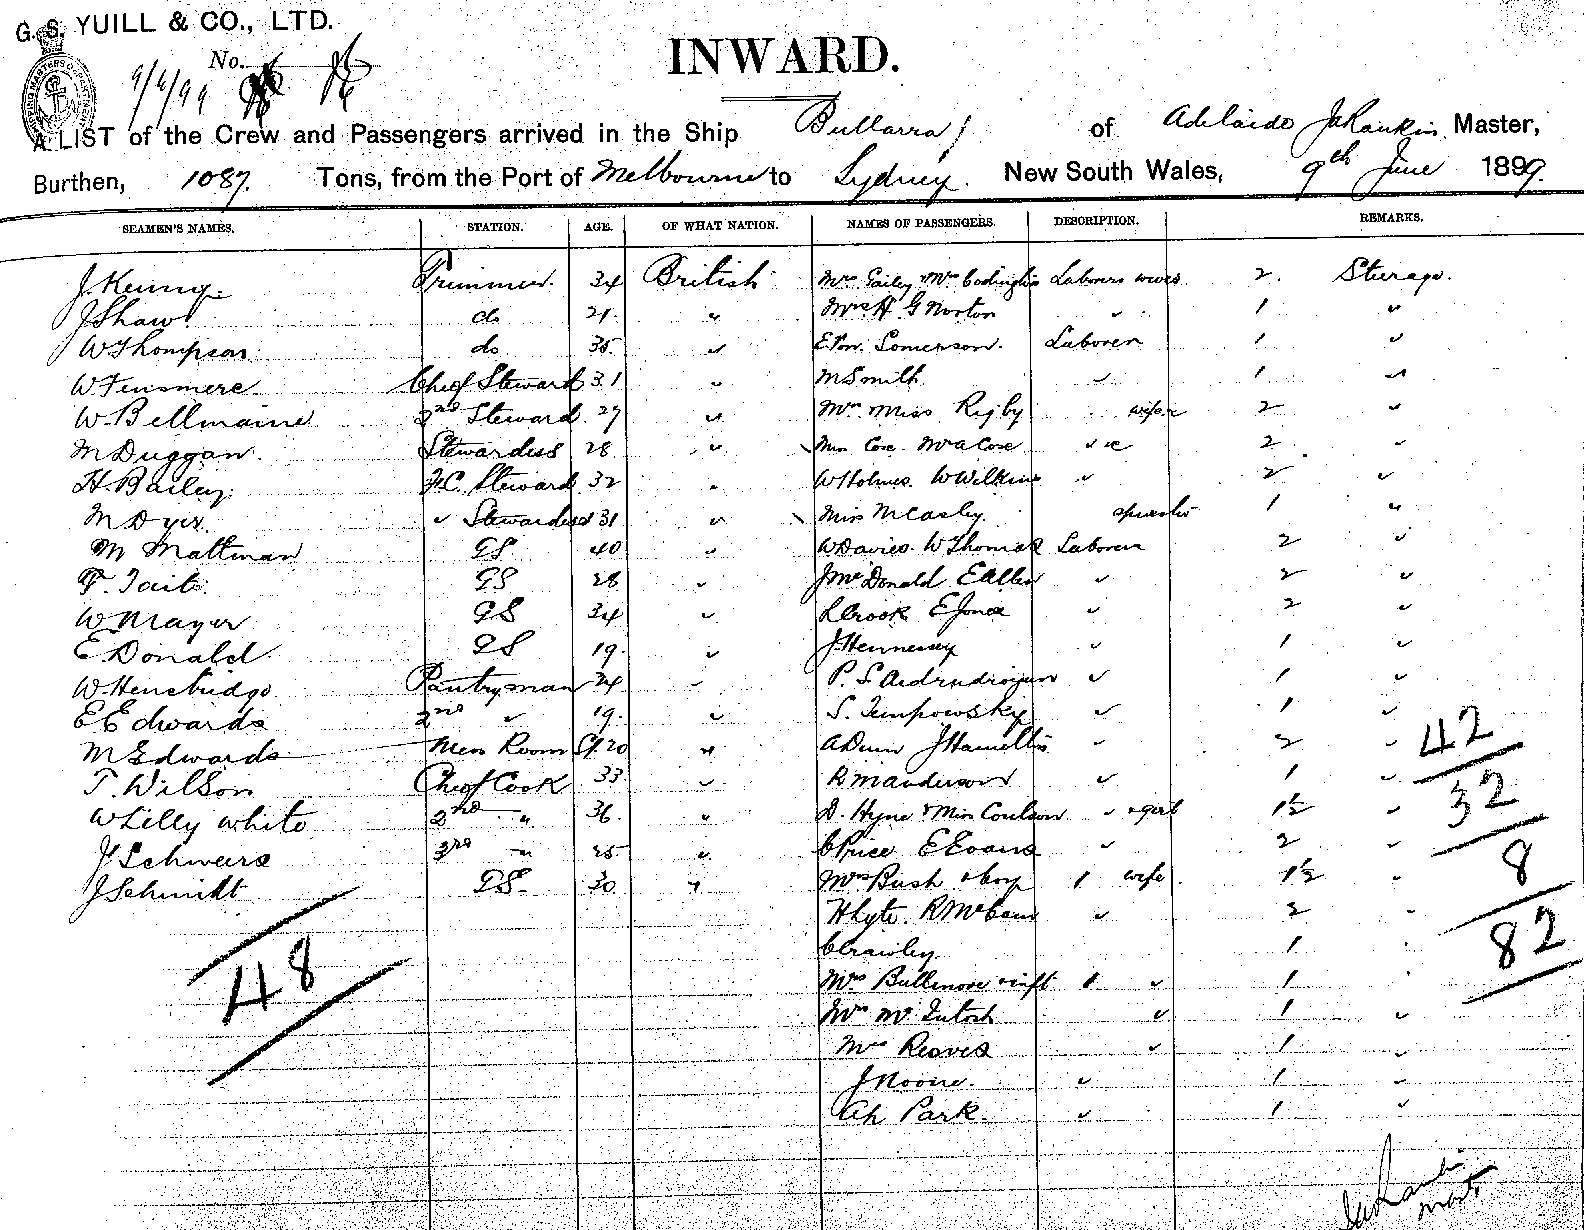 G. S. YUILL & CO., LTD.
No.
9/6/99
INWARD.
A LIST of the Crew and Passengers arrived in the Ship Bullarra of Adelaide Jn Rankin Master,
Burthen, 1087 Tons, from the Port of Melbourne to Sydney. New South Wales, 9th June 1899.
SEAMEN'S NAMES. STATION. AGE. OF WHAT NATION. NAMES OF PASSENGERS. DESCRIPTION. REMARKS.
J Kenny. Trimmer. 34 British Mrs Gailey & Mrs Labourers wives 2. Sterage.
J Shaw do 21. " Mrs H G Norton " 1 "
W Thompson do 35. " Somerson. Laborer 1 "
W Finsmere Chief Steward 31 " M Smith " 1 "
W. Bellmaine 2nd Steward. 29 " Mrs Miss Rigby wife 2 "
M Duggan. Stewardess 28 " Miss Cox Mr A Cox " 2 "
H. Bailey. F.C. Steward 32 " W Holmes. W Wilkins " 2 "
M Dyer. " Stewardess 31 " Miss McCasley. spinster 1 "
M Maltman GS 40 " W Davies. W Thomas Laborer 2 "
T. Tait. GS 28 " J McDonald E Allen " 2 "
W Mayer GS 34 " L Crook E Jones " 2 "
E. Donald GS 19. " J Hennessy " 1 "
W. Hensbridge Pantryman 24 " P. S " 1 "
E Edwards 2nd " 19. " S. Tempowsky " 1 "
M Edwards Mess Room St 20 " A Dunn J Hamellis " 2 " 42
T. Wilson Chief Cook 33 " R Manderson " 1 " 32
W Lilly white 2nd " 36. " D. Hyne & Miss Coulson " & girl 1½ "
J Schweirs 3rd " 25 " C Price E Evans " 2 " 8
J Schmidt GS. 30 " Mrs Bush & boy 1 wife 1½ "
48 H Lyte. R McCann " 2 " 82
C Crawley. 1
Mrs Bullmore & inft 1 " 1
Mrs McIntosh " 1 "
Mrs Reaves " 1 "
J Moore. " 1 "
Ah Park. " 1 "
Jn Rankin